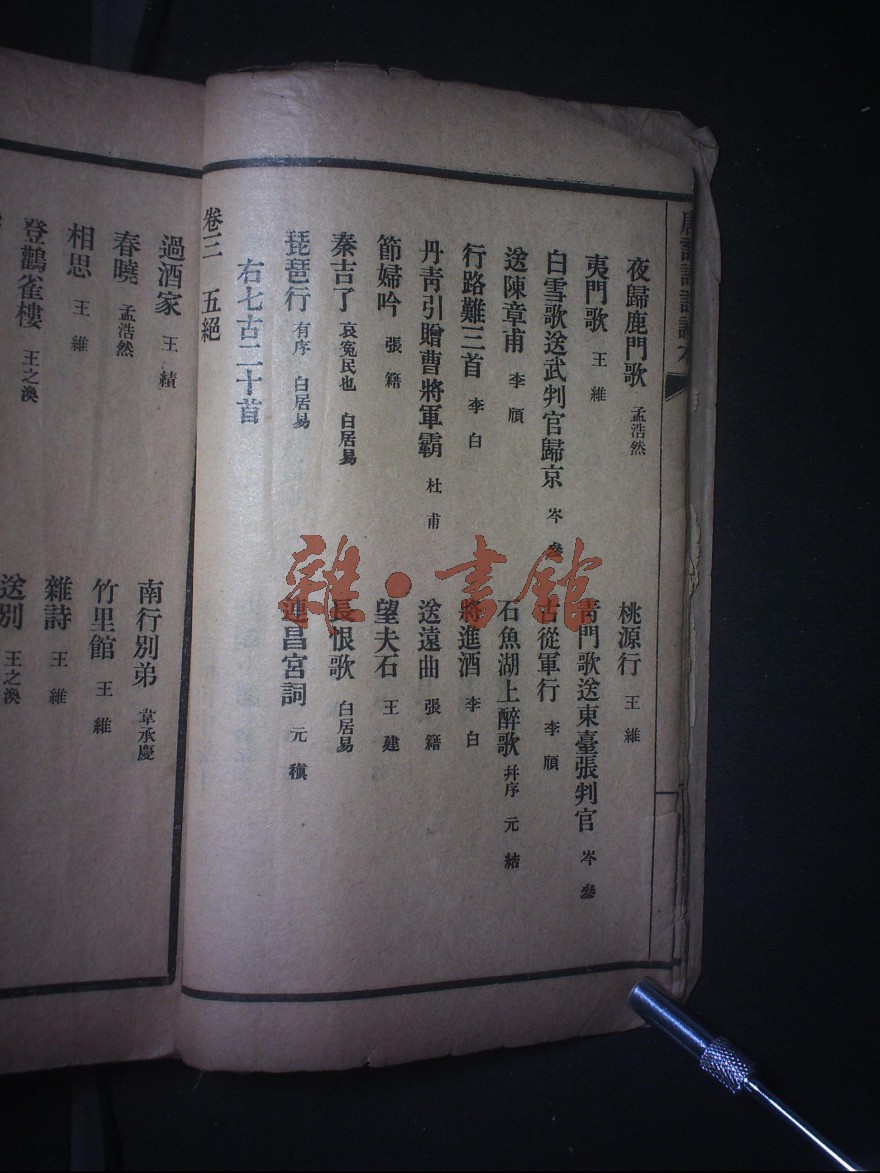 夜歸鹿門歌 孟浩然 桃源行 王維
夷門歌 王維 青門歌送東臺張判官 岑參
白雪歌送武判官歸京 岑參 古從軍行 李頎
送陳章甫 李頎 石魚湖上醉歌 幷序 元結
行路難三首 李白 將進酒 李白
丹青引贈曹將軍霸 杜甫 送遠曲 張籍
節婦吟 張籍 望夫石 王建
秦吉了 哀冤民也 白居易 長恨歌 白居易
琵琶行 有序 白居易 連昌宮詞 元稹
右七古二十首
卷三 五絕
過酒家 王績 南行別弟 韋承慶
春曉 孟浩然 竹里館 王維
相思 王維 雜詩 王維
登鸛雀樓 王之渙 送別 王之渙
雜·書館